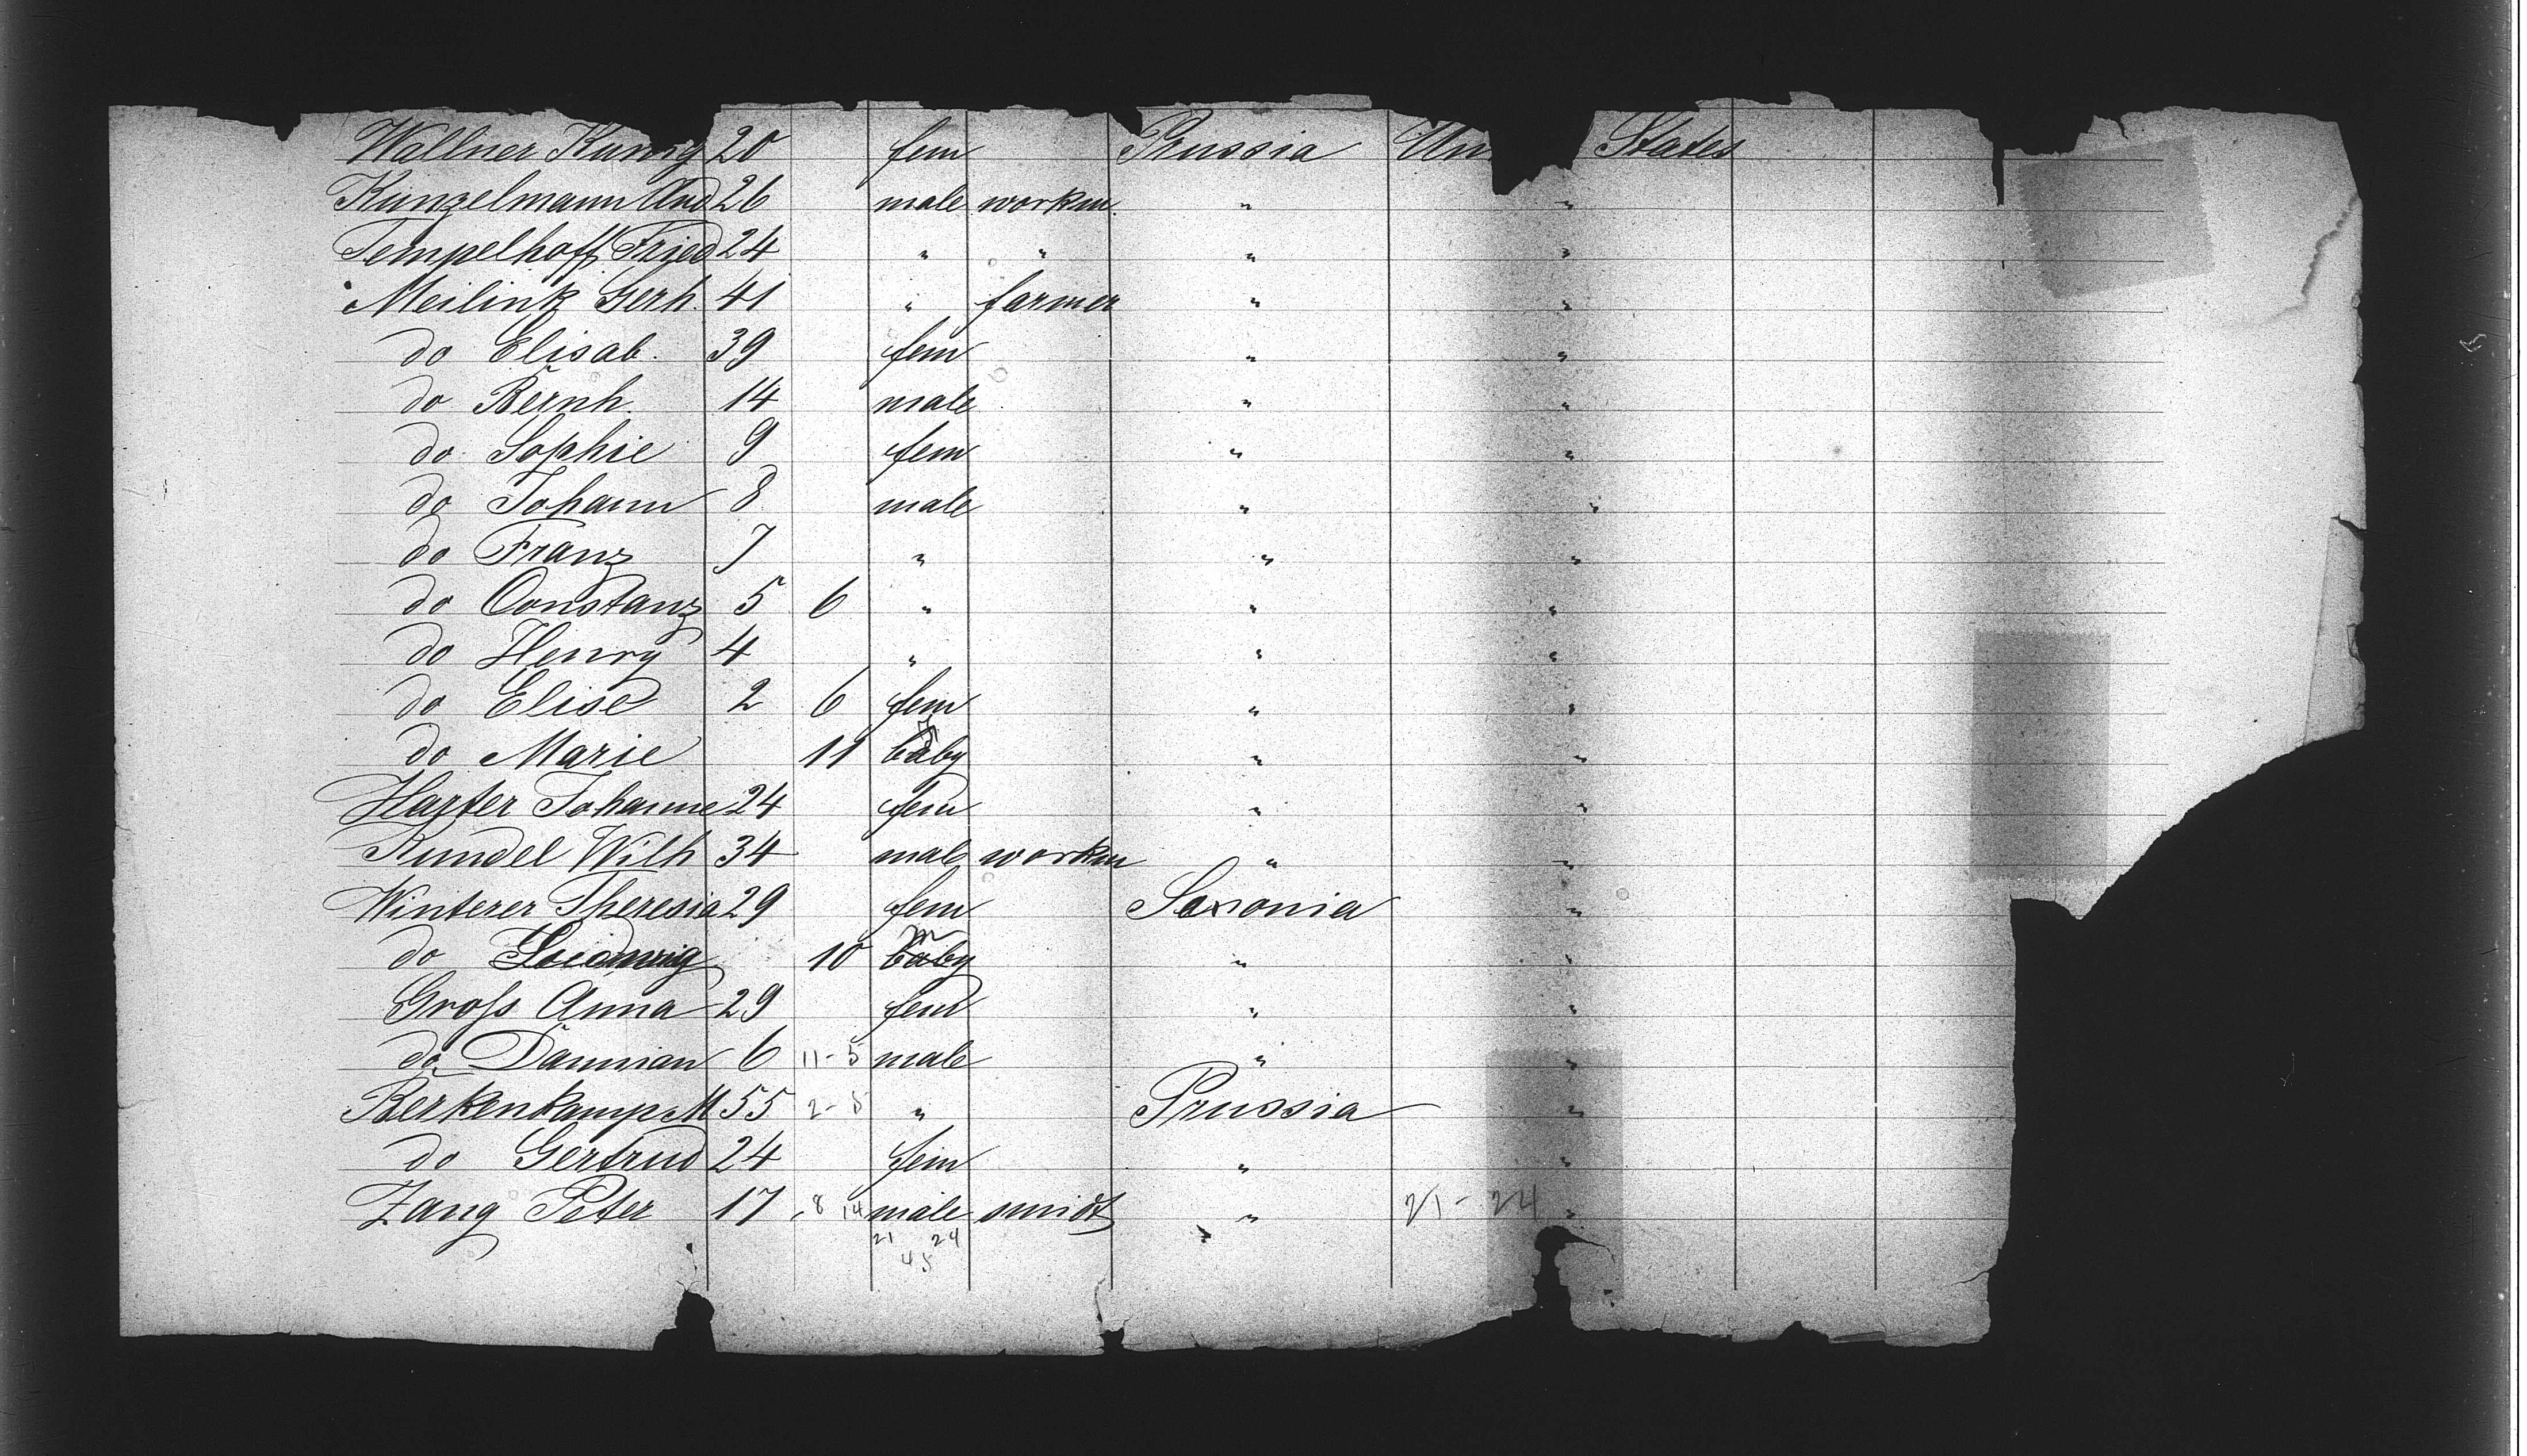 Wallner Kunig 20 fem Prussia Un States
Kunzelmann And 26 male workm. " "
Tempelhoff Fried 24 " " " "
Meilink Gerh. 41 " farmer " "
do Elisab. 39 fem " "
do Bernh. 14 male " "
do Sophie 9 fem " "
do Johann 8 male " "
do Franz 7 " " "
do Constanz 5 6 " " "
do Henry 4 " " "
do Elise 2 6 fem " "
do Marie 11 baby " "
Harter Johanne 24 fem " "
Rundel Wilh 34 male workm " "
Winterer Theresia 29 fem Saxonia "
do Ludwig 10 m baby " "
Groſs Anna 29 fem " "
do Damian 6 11-5 male " "
Berkenkamp M 55 2-5 " Prussia "
do Gertrud 24 fem " "
Zang Peter 17 8 14 male smidt " 21-24 "
21 24
45